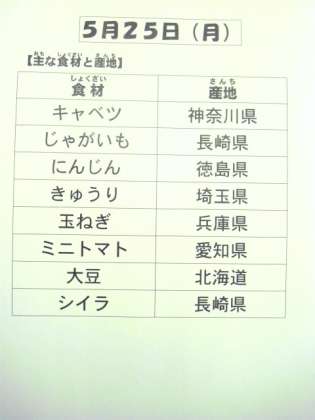 5月25日(月)
おも しょくざい さんち
【主な食材と産地】
しょくざい さんち
食材 産地
キャベツ 神奈川県
じゃがいも 長崎県
にんじん 徳島県
きゅうり 埼玉県
玉ねぎ 兵庫県
ミニトマト 愛知県
大豆 北海道
シイラ 長崎県